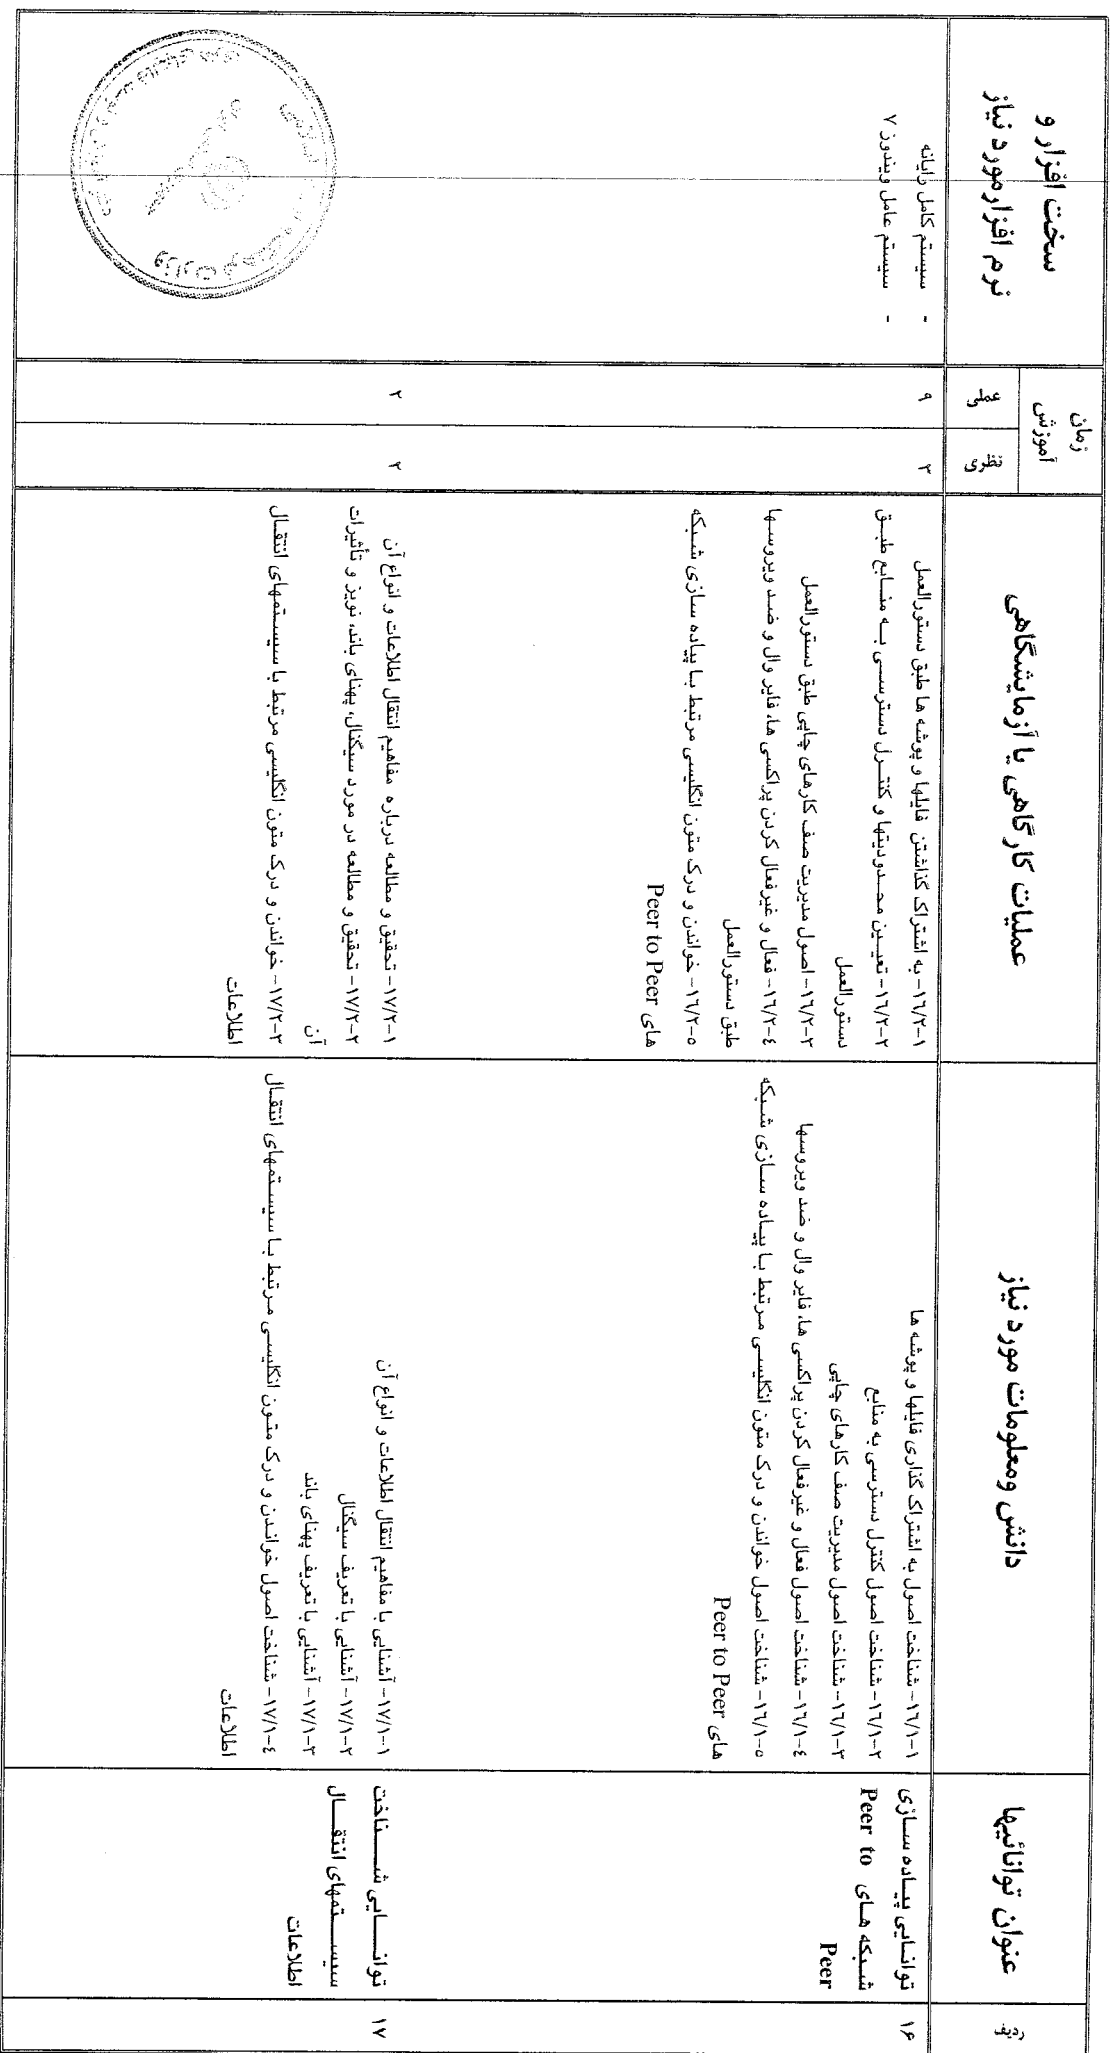 ردیف
عنوان توانائیها
دانش ومعلومات مورد نیاز
عملیات کارگاهی یا آزمایشگاهی
زمان
آموزش
نظری
عملی
سخت افزار و
نرم افزار مورد نیاز
۱۶
توانایی پیاده سازی
شبکه های Peer to
Peer
۱-۱۶/۱- شناخت اصول به اشتراک گذاری فایلها و پوشه ها
۲-۱۶/۱- شناخت اصول کنترل دسترسی به منابع
۳-۱۶/۱- شناخت اصول مدیریت صف کارهای چاپی
۴-۱۶/۱- شناخت اصول فعال و غیرفعال کردن پراکسی ها، فایر وال و ضد ویروسها
۵-۱۶/۱- شناخت اصول خواندن و درک متون انگلیسی مرتبط با پیاده سازی شبکه
های Peer to Peer
۱-۱۶/۲- به اشتراک گذاشتن فایلها و پوشه ها طبق دستورالعمل
۲-۱۶/۲- تعیین محدودیتها و کنترل دسترسی به منابع طبق
دستورالعمل
۳-۱۶/۲- اصول مدیریت صف کارهای چاپی طبق دستورالعمل
۴-۱۶/۲- فعال و غیرفعال کردن پراکسی ها، فایر وال و ضد ویروسها
طبق دستورالعمل
۵-۱۶/۲- خواندن و درک متون انگلیسی مرتبط با پیاده سازی شبکه
های Peer to Peer
۳
۹
- سیستم کامل رایانه
- سیستم عامل ویندوز ۷
۱۷
توانایی شناخت
سیستمهای انتقال
اطلاعات
۱-۱۷/۱- آشنایی با مفاهیم انتقال اطلاعات و انواع آن
۲-۱۷/۱- آشنایی با تعریف سیگنال
۳-۱۷/۱- آشنایی با تعریف پهنای باند
۴-۱۷/۱- شناخت اصول خواندن و درک متون انگلیسی مرتبط با سیستمهای انتقال
اطلاعات
۱-۱۷/۲- تحقیق و مطالعه درباره مفاهیم انتقال اطلاعات و انواع آن
۲-۱۷/۲- تحقیق و مطالعه در مورد سیگنال، پهنای باند، نویز و تأثیرات
آن
۳-۱۷/۲- خواندن و درک متون انگلیسی مرتبط با سیستمهای انتقال
اطلاعات
۲
۲